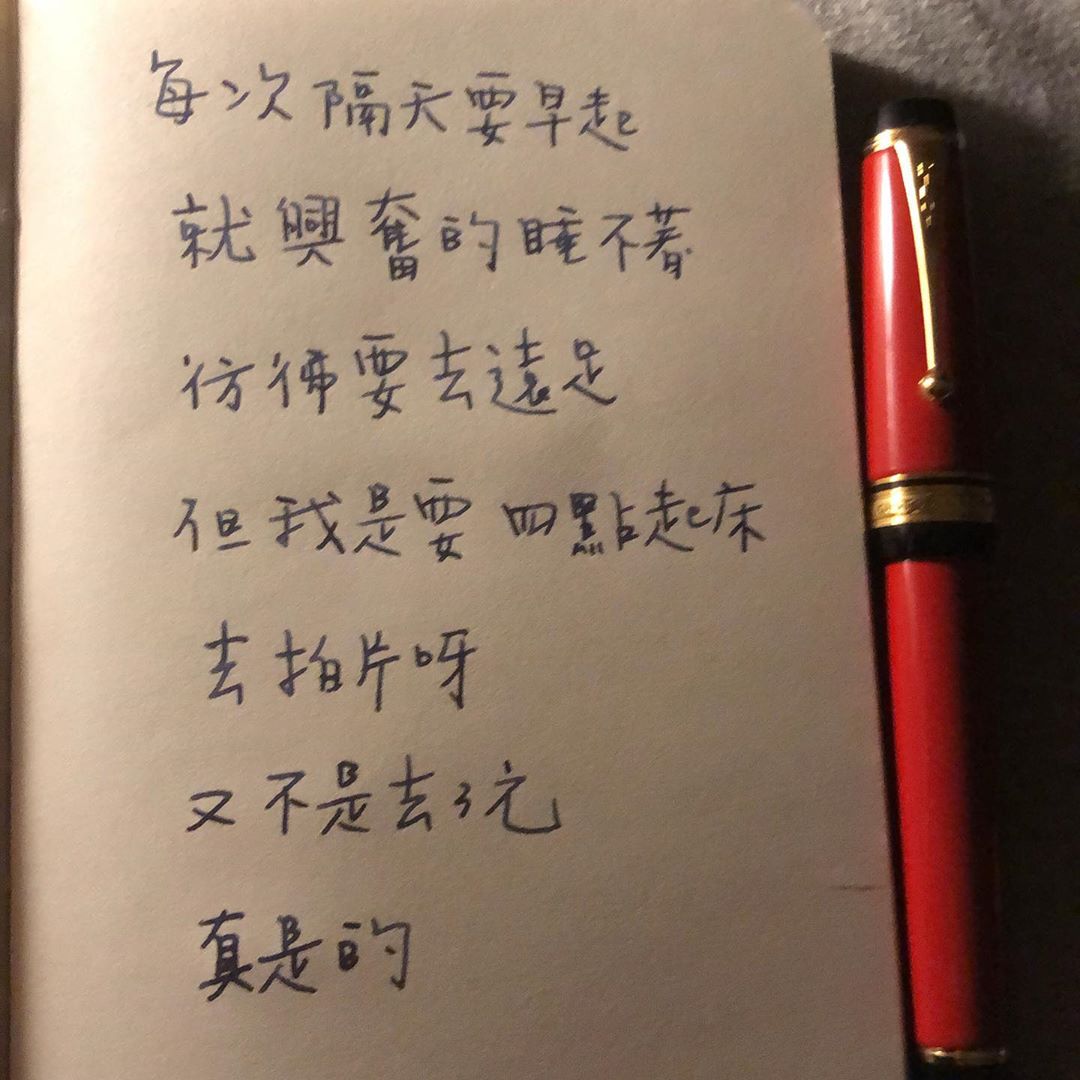 每次隔天要早起
就興奮的睡不著
彷彿要去遠足
但我是要四點起床
去拍片呀
又不是去玩
真是的